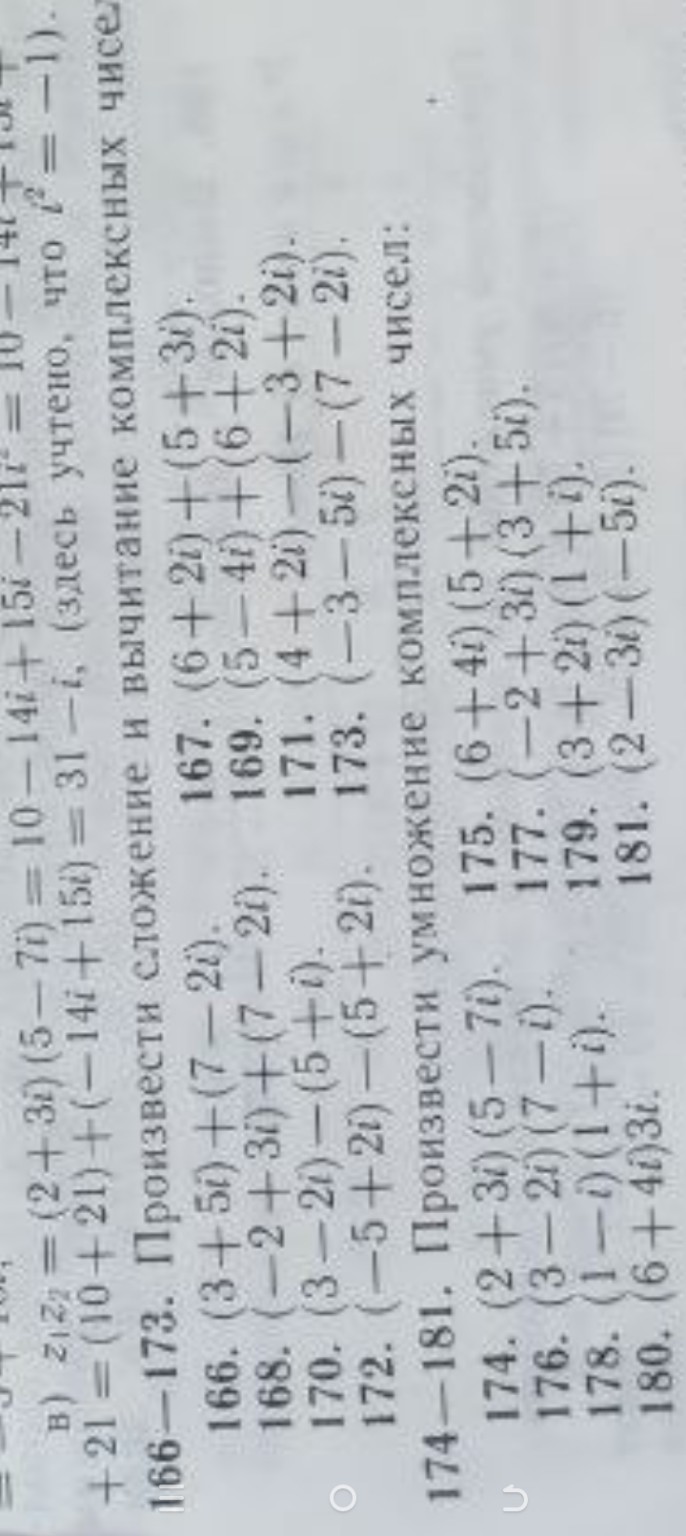 в) z₁z₂ = (2 + 3i) (5 − 7i) = 10 − 14i + 15i − 21i² = 10 − 14i + 15i +
+ 21 = (10 + 21) + (− 14i + 15i) = 31 − i, (здесь учтено, что i² = −1).
166—173. Произвести сложение и вычитание комплексных
166. (3 + 5i) + (7 − 2i). 167. (6 + 2i) + (5 + 3i).
168. (−2 + 3i) + (7 − 2i). 169. (5 − 4i) + (6 + 2i).
170. (3 − 2i) − (5 + i). 171. (4 + 2i) − (−3 + 2i).
172. (−5 + 2i) − (5 + 2i). 173. (−3 − 5i) − (7 − 2i).
174—181. Произвести умножение комплексных чисел:
174. (2 + 3i) (5 − 7i). 175. (6 + 4i) (5 + 2i).
176. (3 − 2i) (7 − i). 177. (−2 + 3i) (3 + 5i).
178. (1 − i) (1 + i). 179. (3 + 2i) (1 + i).
180. (6 + 4i)3i. 181. (2 − 3i) (−5i).